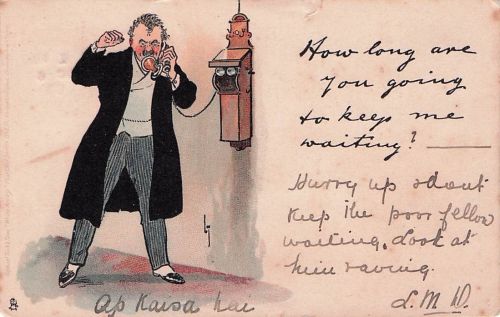 How long are
you going
to keep me
waiting?
Hurry up & dont
keep the poor fellow
waiting. Look at
him raving.
L. M. W.
Ap Kaisa hai